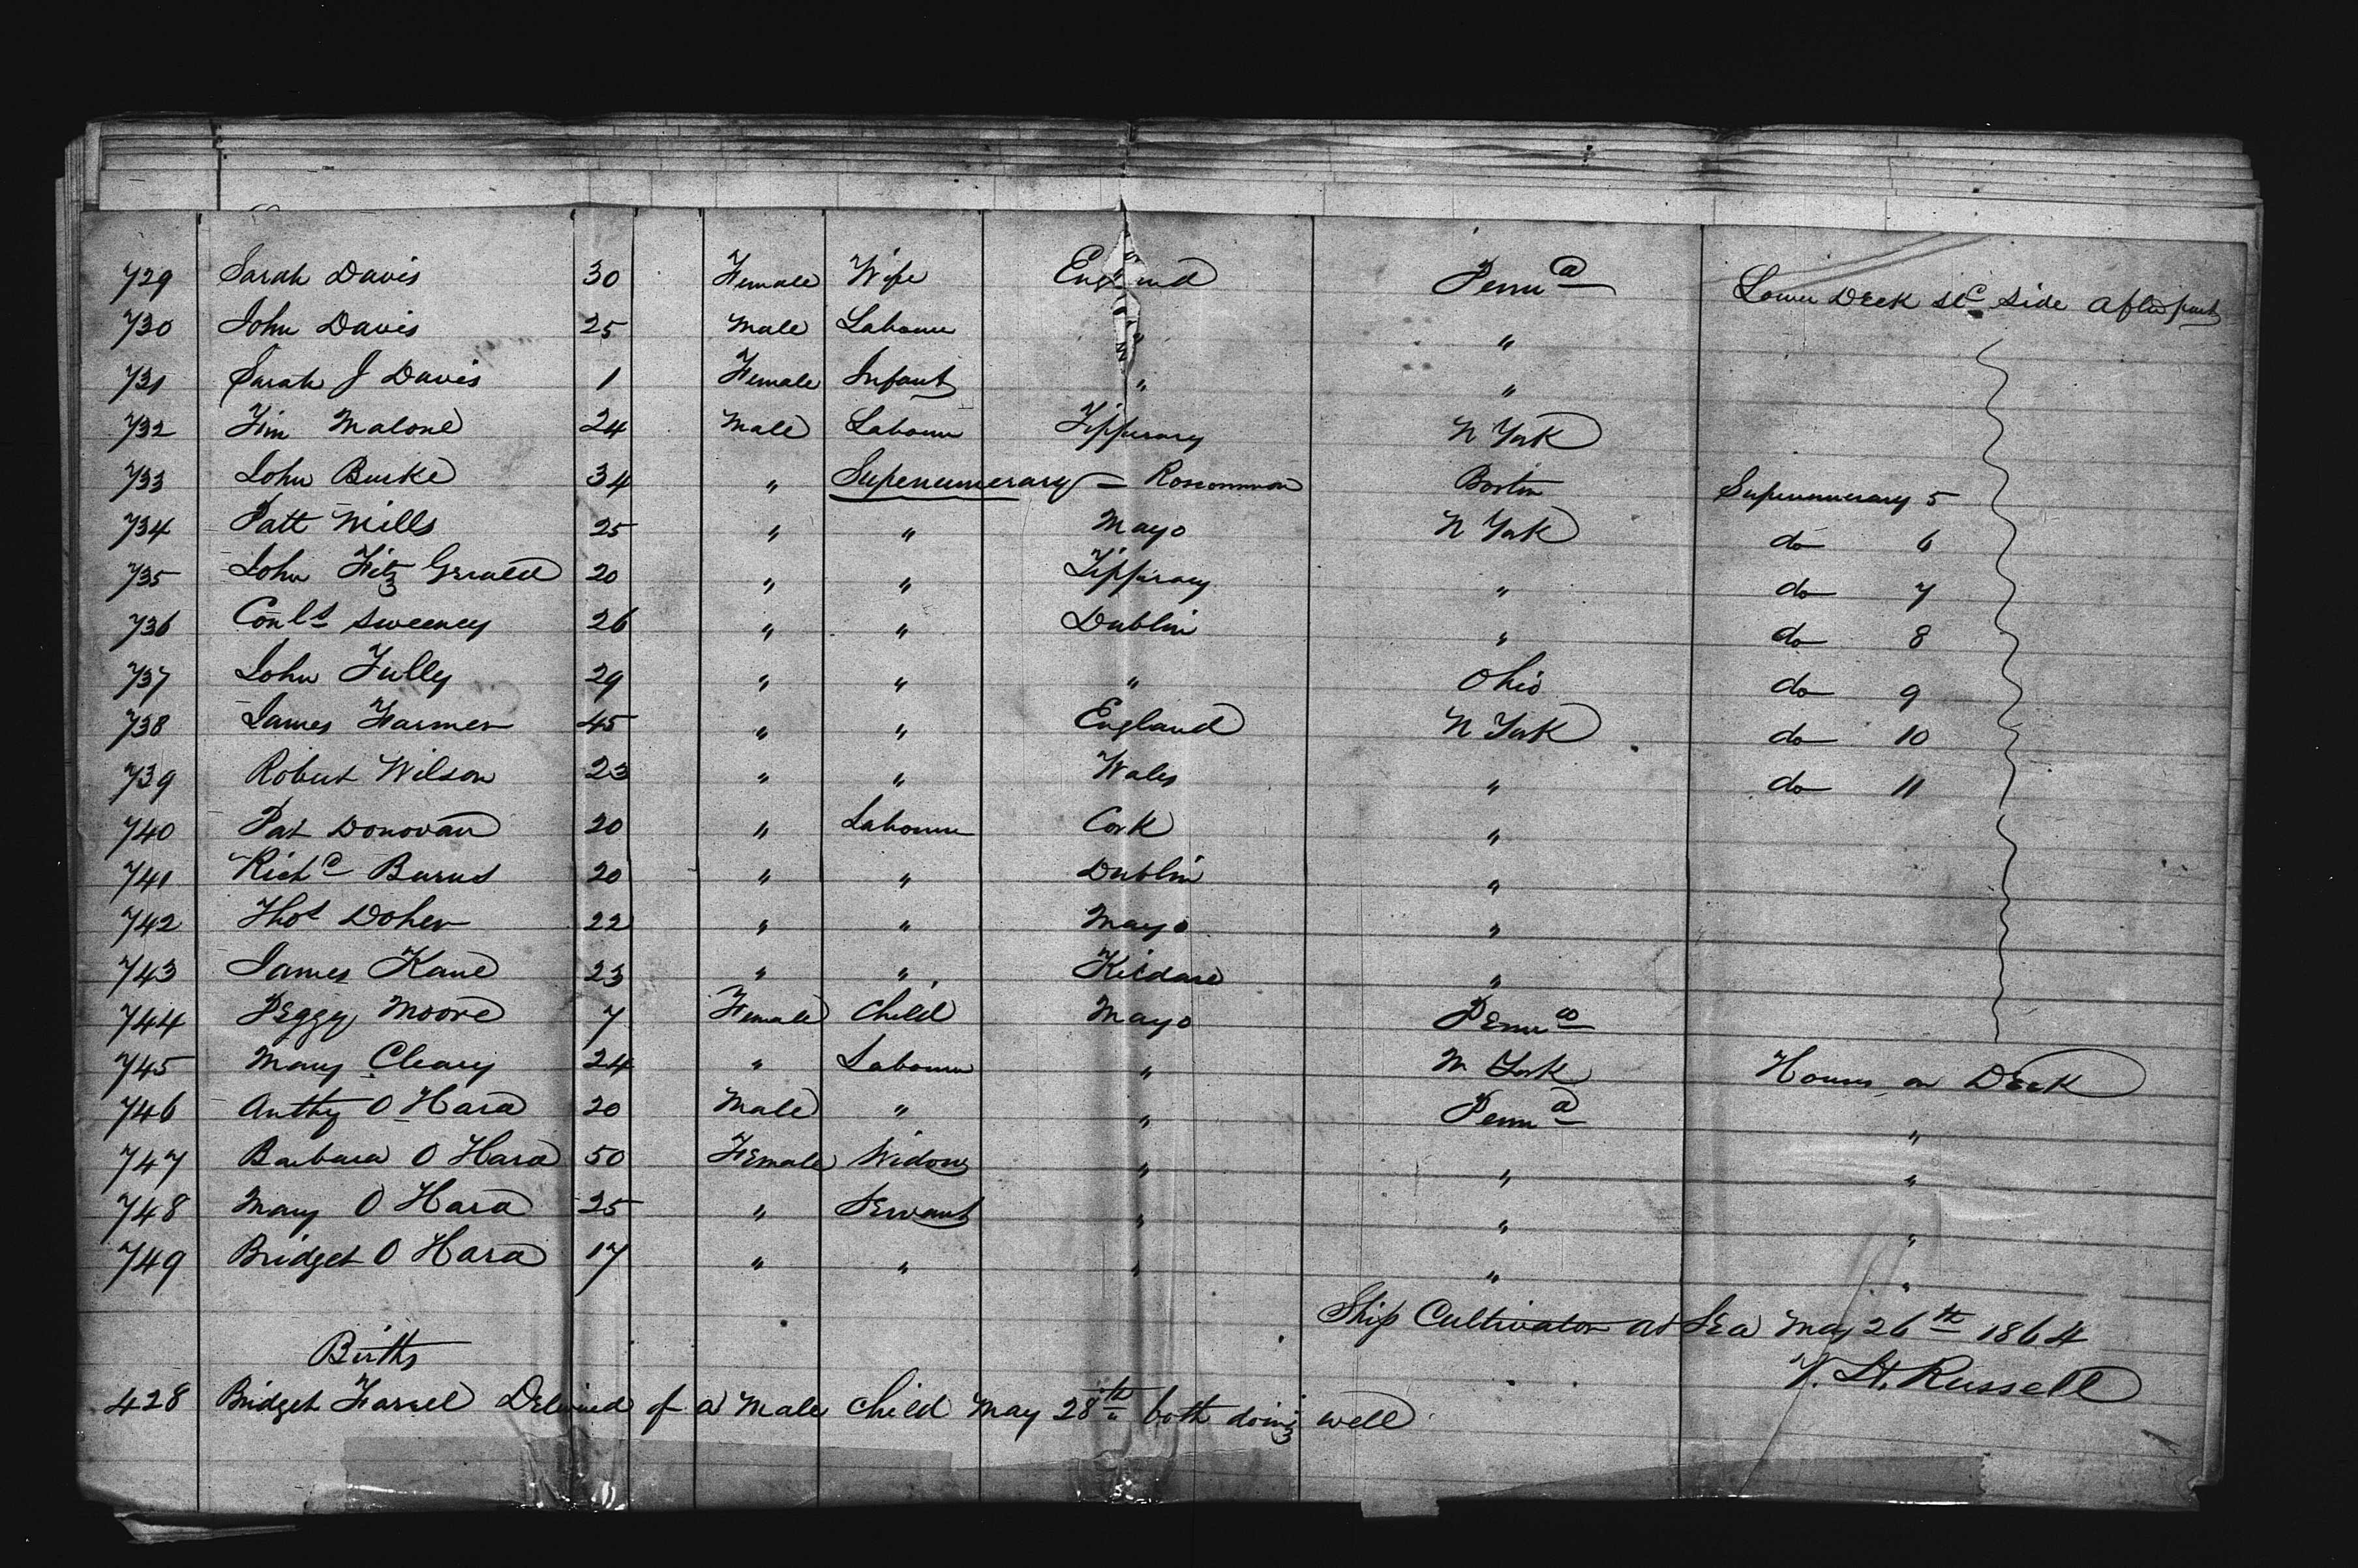 729 Sarah Davis 30 Female Wife England Penn a Lower Deck St c Side After part
730 John Davis 25 Male Labourer " "
731 Sarah J Davis 1 Female Infant " "
732 Tim Malone 24 Male Labourer Tipperary N York
733 John Burke 34 " Supernumerary – Roscommon Boston Supernumerary 5
734 Patt Mills 25 " " Mayo N York do 6
735 John Fitz Gerald 20 " " Tipperary " do 7
736 Sweeney 26 " " Dublin " do 8
737 John Tully 29 " " " Ohio do 9
738 James Farmer 45 " " England N York do 10
739 Robert Wilson 23 " " Wales " do 11
740 Pat Donovan 20 " Labourer Cork "
741 Rich d Burns 20 " " Dublin "
742 Tho s Doher 22 " " Mayo "
743 James Kane 23 " " Kildare "
744 Peggy Moore 7 Female Child Mayo Penn a
745 Mary Cleary 24 " Labourer " N York House on Deck
746 Anthy O Hara 20 Male " " Penn a "
747 Barbara O Hara 50 Female Widow " " "
748 Mary O Hara 25 " Servant " " "
749 Bridget O Hara 17 " " " " "
Ship Cultivator at Sea May 26th 1864
Births
Russell
428 Bridget Farrel Delivered of a Male Child May 28th both doing well